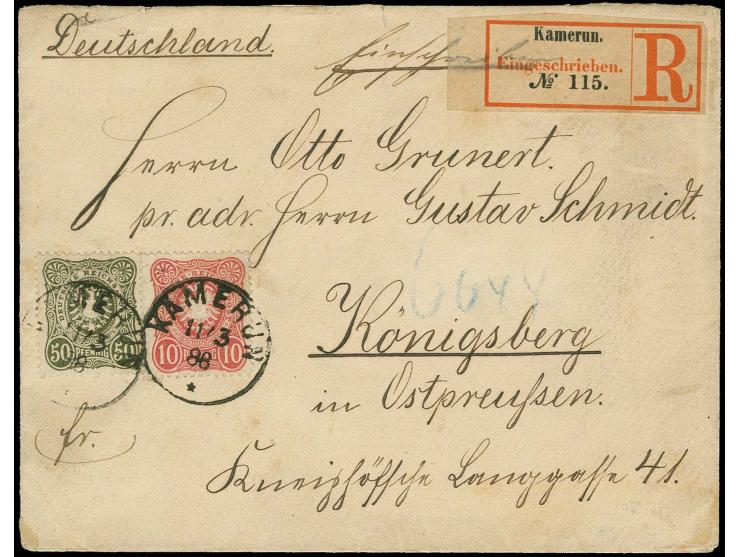 Deutschland.
Einschreiben
Kamerun.
Eingeschrieben.
№ 115.
R
Herrn Otto Grunert.
pr. adr. Herrn Gustav Schmidt.
Königsberg
in Ostpreussen.
Kneiphöfsche Langgasse 41.
fr.
DEUTSCHE REICHS-POST
50 PFENNIG 50
10 PFENNIG 10
KAMERUN
11/3
88
*